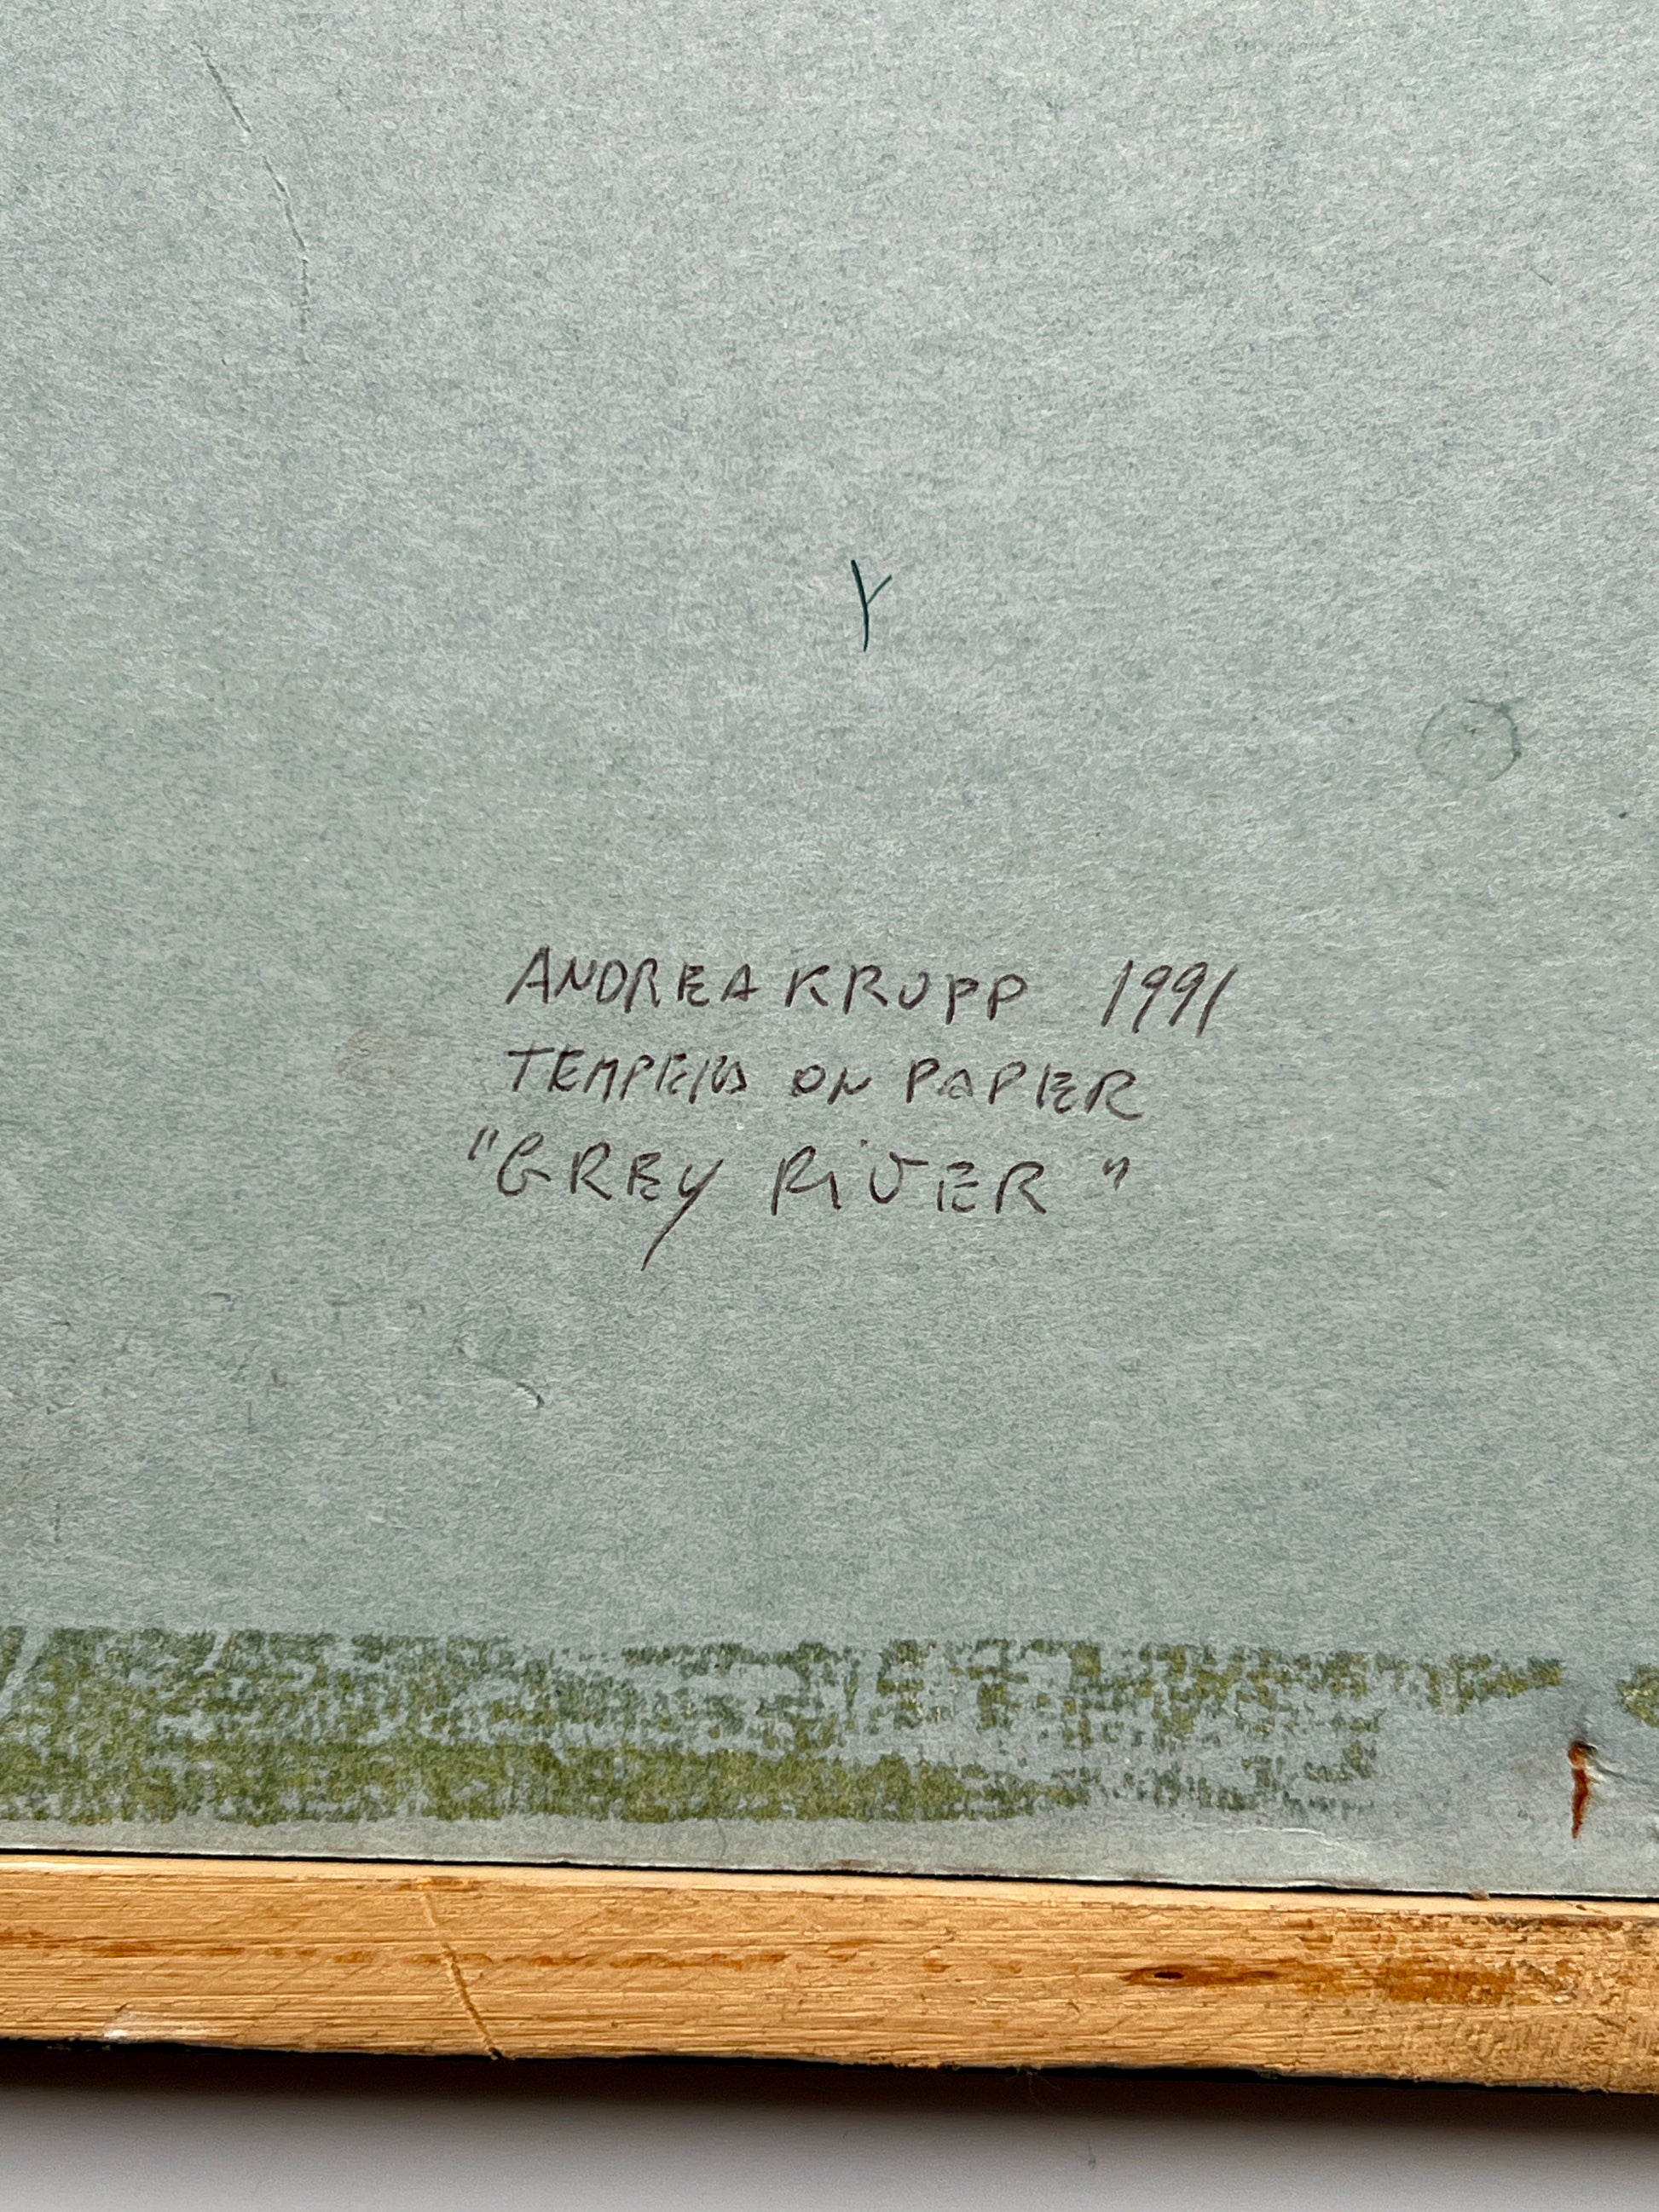 Y
ANDREA KRUPP 1991
TEMPERA ON PAPER
"GREY RiVER"